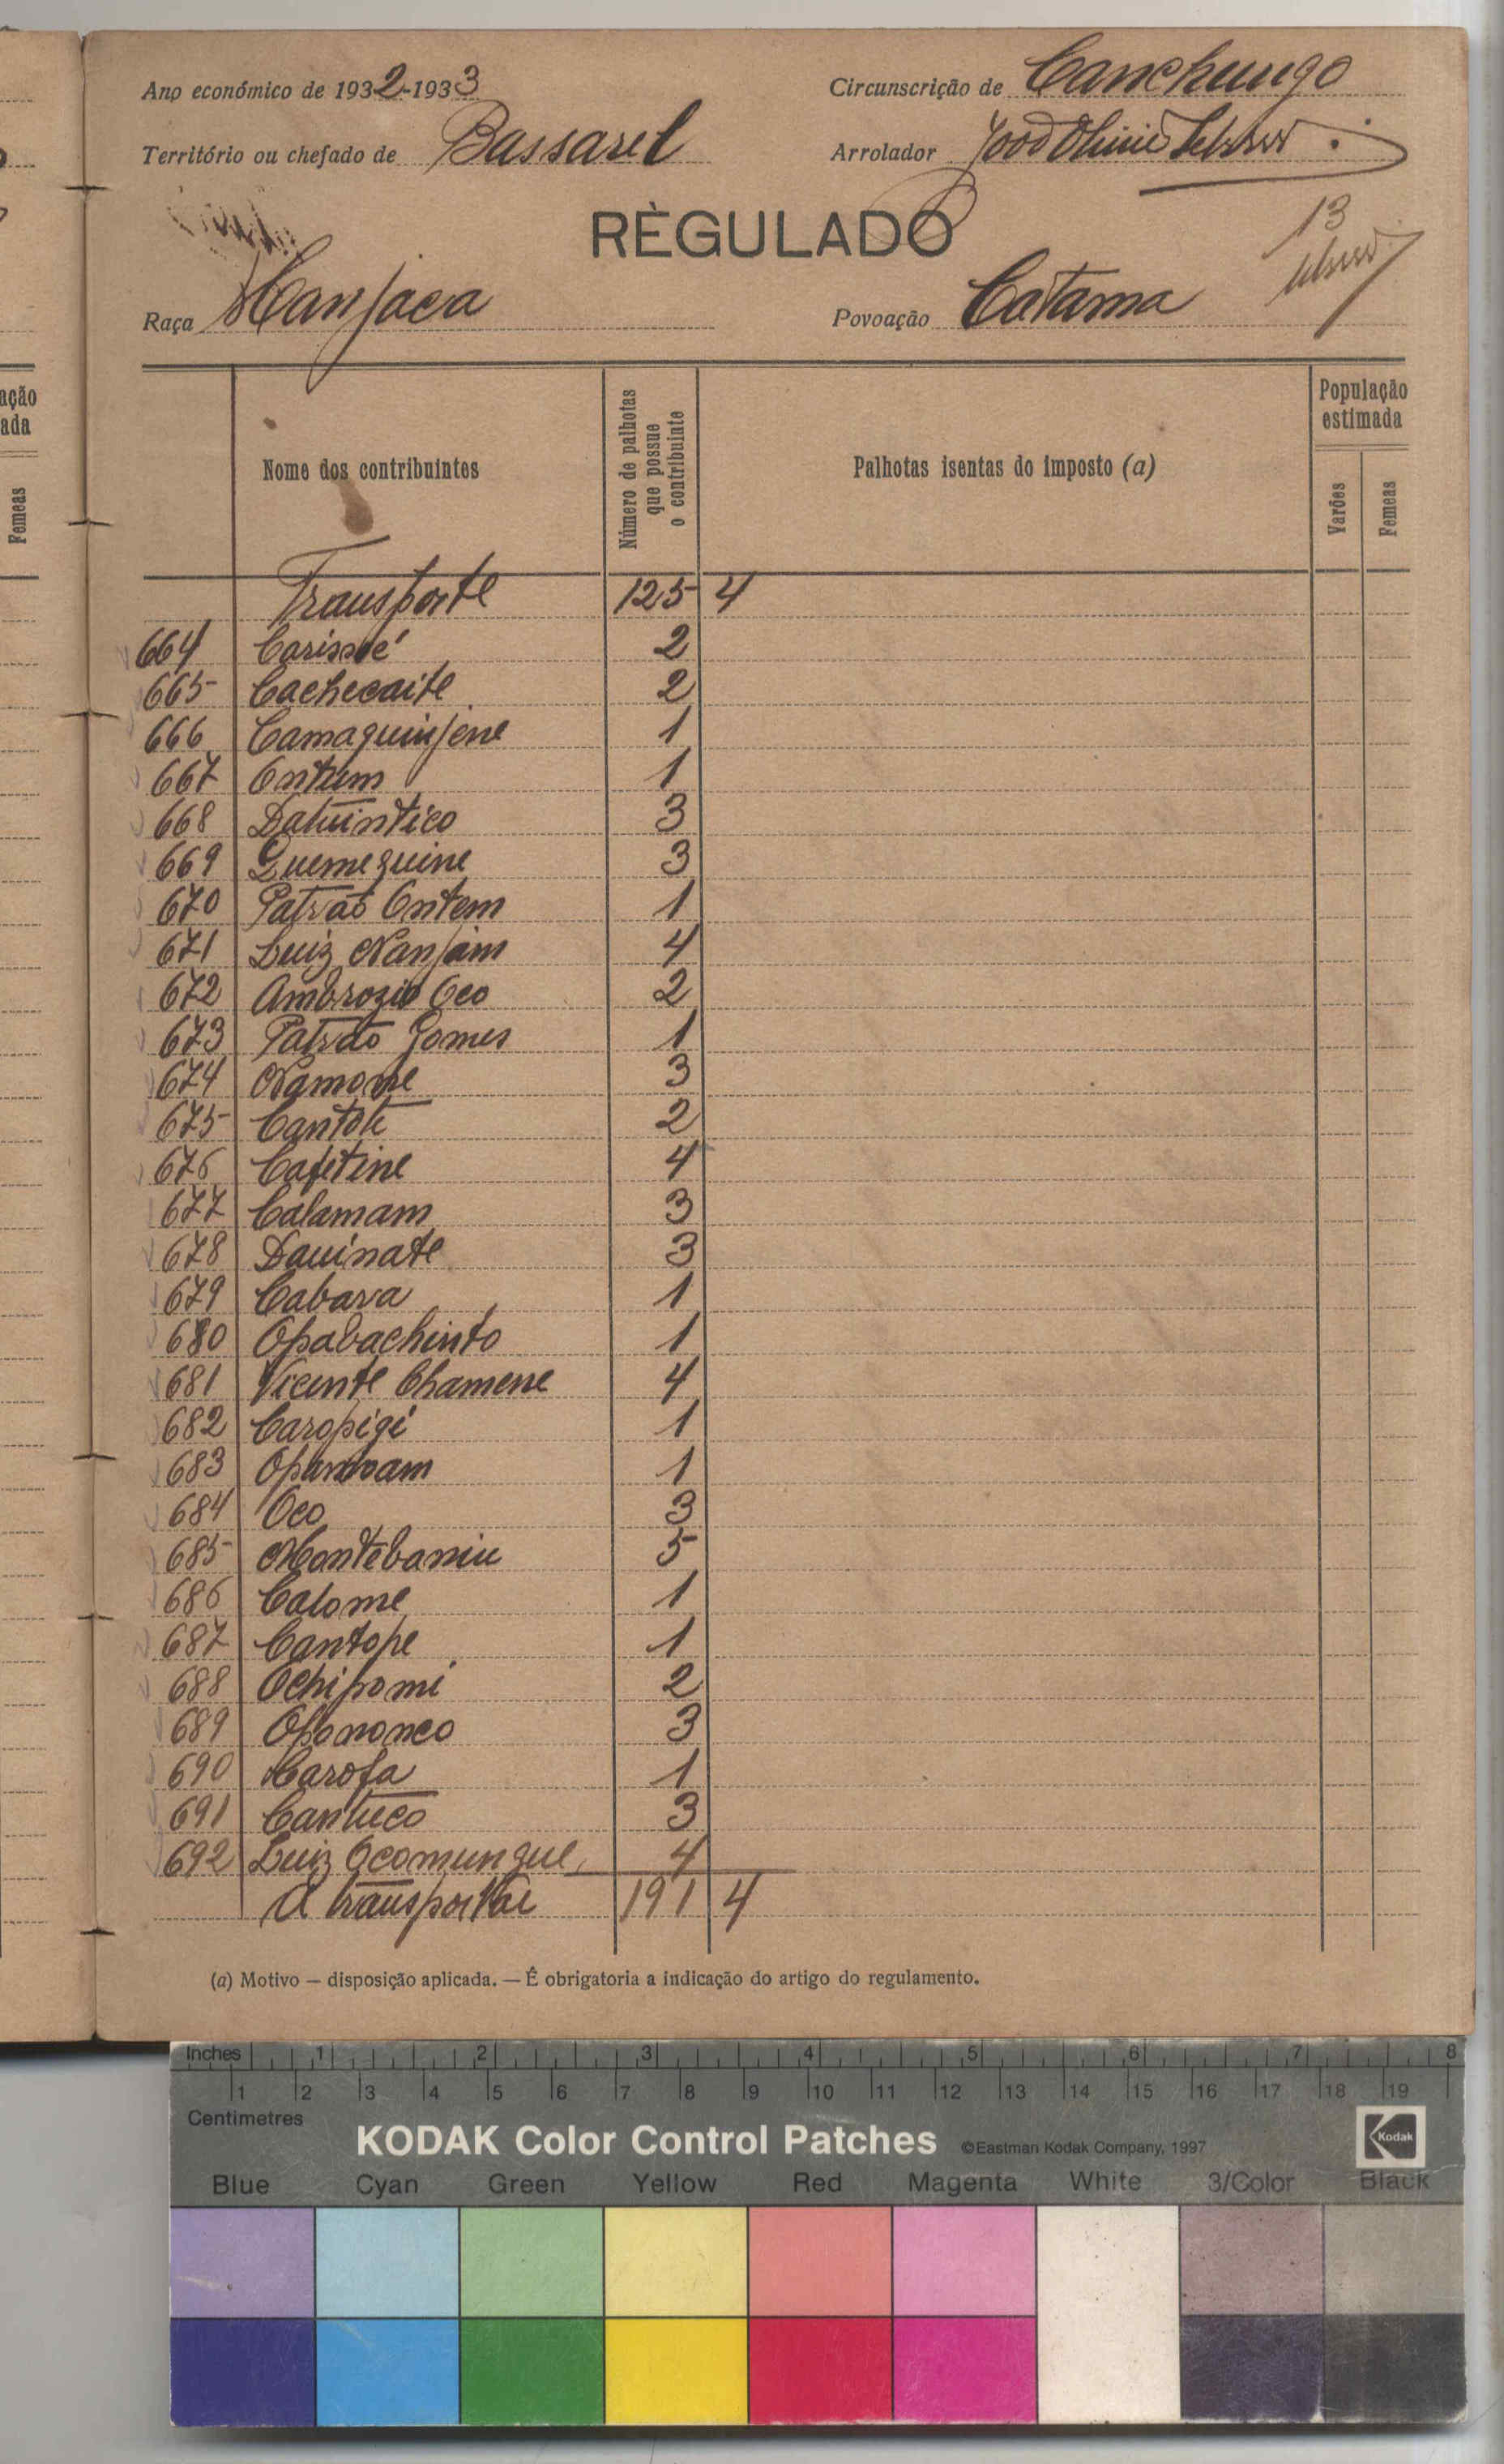 Ano económico de 1932-1933
Circunscrição de Canchungo
Território ou chefado de Bassarel
Arrolador
RÈGULADO
13
Raça Manjaca
Povoação Catama
Nome dos contribuintes
Número de palhotas que possue o contribuinte
Palhotas isentas do imposto (a)
População estimada
Varões
Femeas
ação
ada
Femeas
Transporte 125 4
664 2
665 Cachecaite 2
666 Camaquinjene 1
667 Ontum 1
668 Datuintico 3
669 Quemequine 3
670 Patrão Ontem 1
671 Luiz Nanjam 4
672 Ambrozio Oco 2
673 Patrão Gomes 1
674 Namone 3
675 Cantoti 2
676 Cafetine 4
677 Calamam 3
678 Dauinate 3
679 Cabava 1
680 Opabachinto 1
681 Vicente Chamene 4
682 Caropigi 1
683 1
684 Oco 3
685 Montebaniu 5
686 Calome 1
687 Cantope 1
688 Ochipomi 2
689 Opononco 3
690 Carofa 1
691 Cantuco 3
692 Luiz Ocomungue 4
A transportar 191 4
(a) Motivo — disposição aplicada. — É obrigatoria a indicação do artigo do regulamento.
Inches 1 2 3 4 5 6 7 8
1 2 3 4 5 6 7 8 9 10 11 12 13 14 15 16 17 18 19
Centimetres
KODAK Color Control Patches ©Eastman Kodak Company, 1997 Kodak
Blue Cyan Green Yellow Red Magenta White 3/Color Black